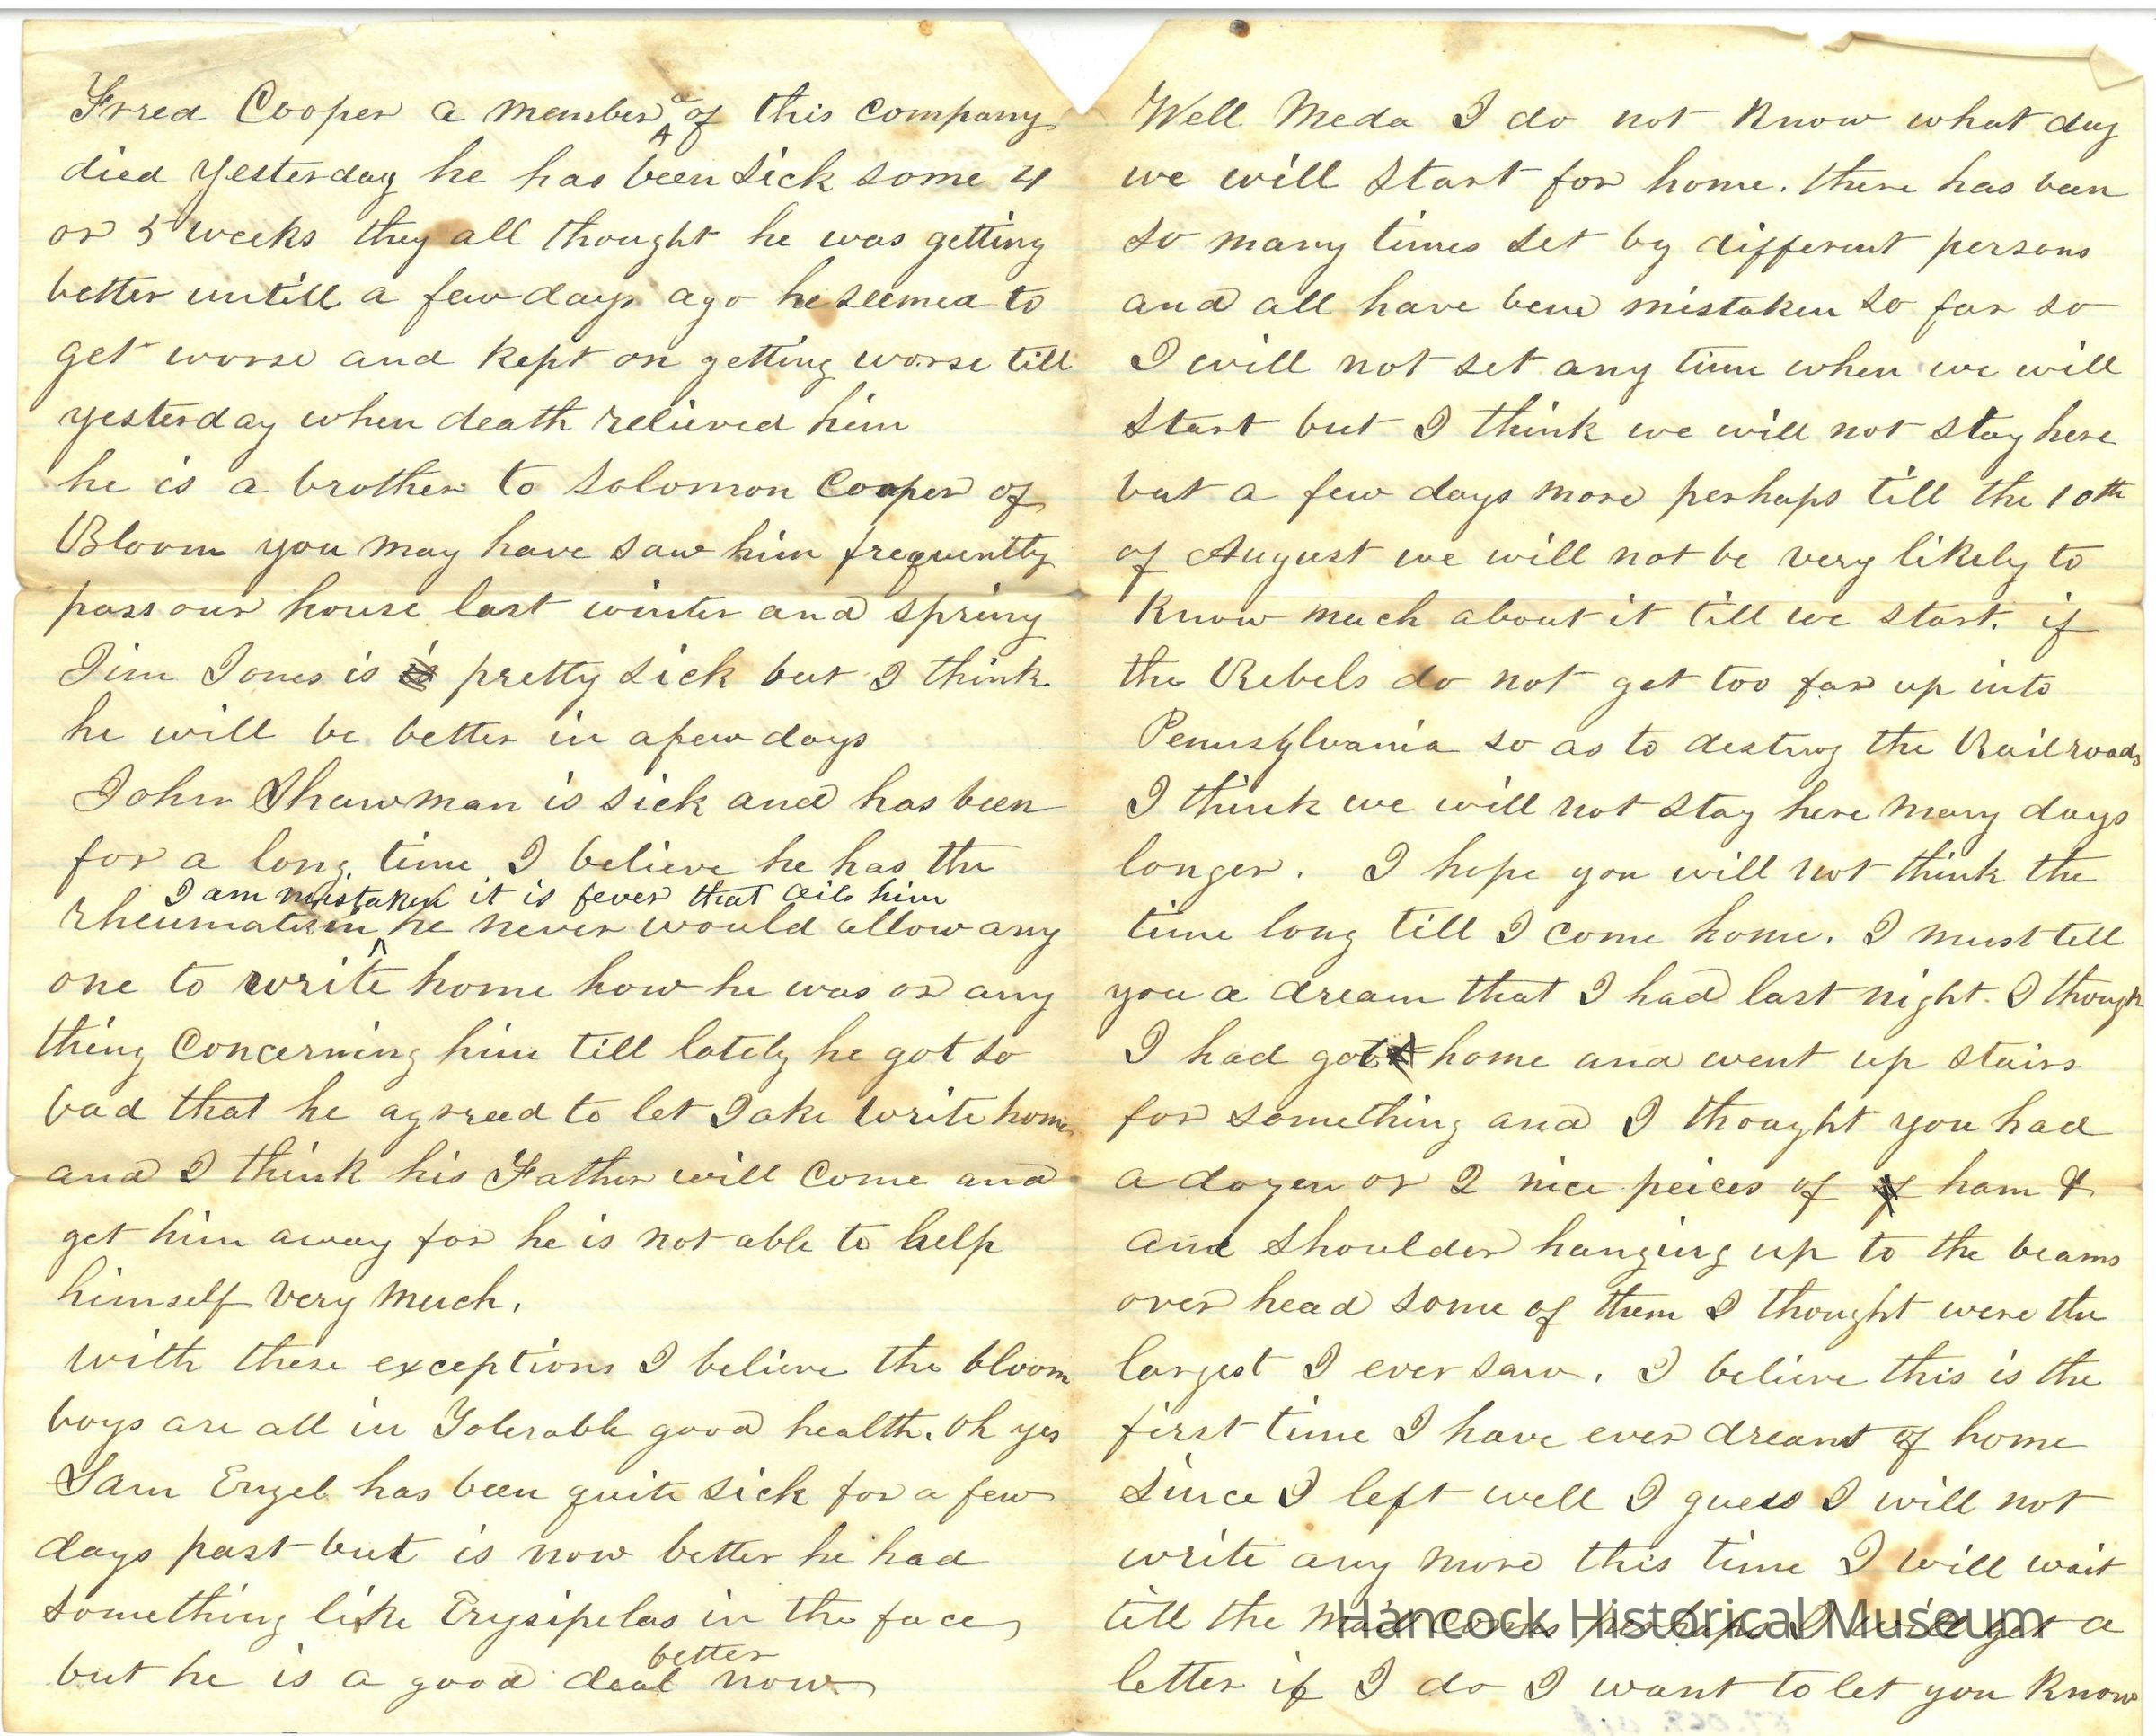 Frred Cooper a member of this company
died yesterday he has been sick some 4
or 5 weeks they all thought he was getting
better untill a few days ago he seemed to
get worse and kept on getting worse till
yesterday when death relieved him
he is a brother to Solomon Cooper of
Bloom you may have saw him frequently
pass our house last winter and spring
Jim Jones is is pretty sick but I think
he will be better in a few days
John Showman is sick and has been
for a long time I believe he has the
I am mistaken it is fever that ails him
rheumatism he never would allow any
one to write home how he was or any
thing concerning him till lately he got so
bad that he agreed to let Jake write home
and I think his Father will come and
get him away for he is not able to help
himself very much.
with these exceptions I believe the bloom
boys are all in Tolerable good health. Oh yes
Sam Engel has been quite sick for a few
days past but is now better he had
something like Erysipelas in the face
better
but he is a good deal now
Well Meda I do not know what day
we will start for home. there has been
so many times set by different persons
and all have bene mistaken so far so
I will not set any time when we will
start but I think we will not stay here
but a few days more perhaps till the 10th
of August we will not be very likely to
know much about it till we start. if
the Rebels do not get too far up into
Pennsylvania so as to destroy the Railroads
I think we will not stay here many days
longer. I hope you will not think the
time long till I come home. I must tell
you a dream that I had last night. I though
I had got home and went up stairs
for something and I thought you had
a dozen or 2 nice peices of of ham &
and shoulder hanging up to the beams
over head some of them I thought were the
largest I ever saw. I believe this is the
first time I have ever dreamt of home
since I left well I guess I will not
write any more this time I will wait
till the mail comes perhaps I will get a
letter if I do I want to let you know
Hancock Historical Museum